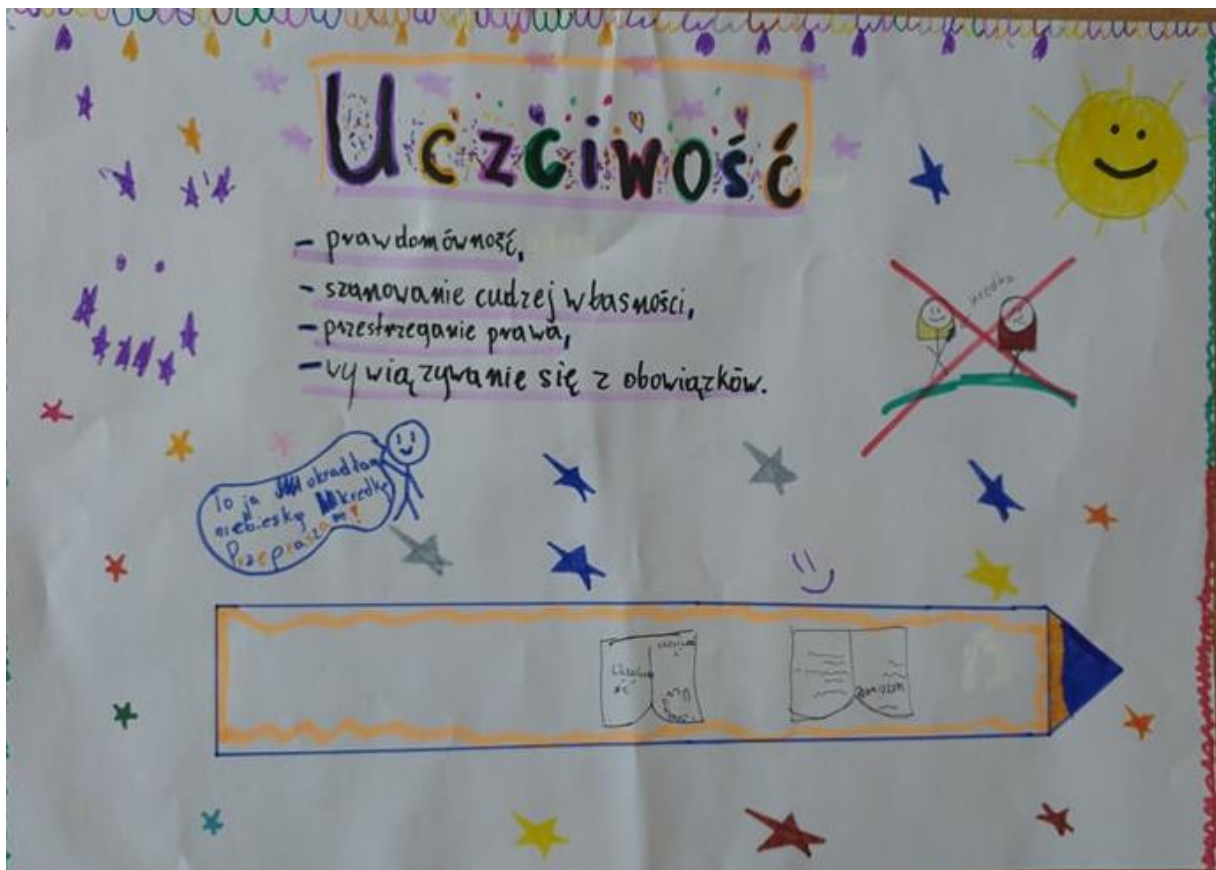 Uczciwość
- prawdomówność,
- szanowanie cudzej własności,
- przestrzeganie prawa,
- wywiązywanie się z obowiązków.
kredka
To ja ukradłam
niebieską kredkę
Przepraszam!